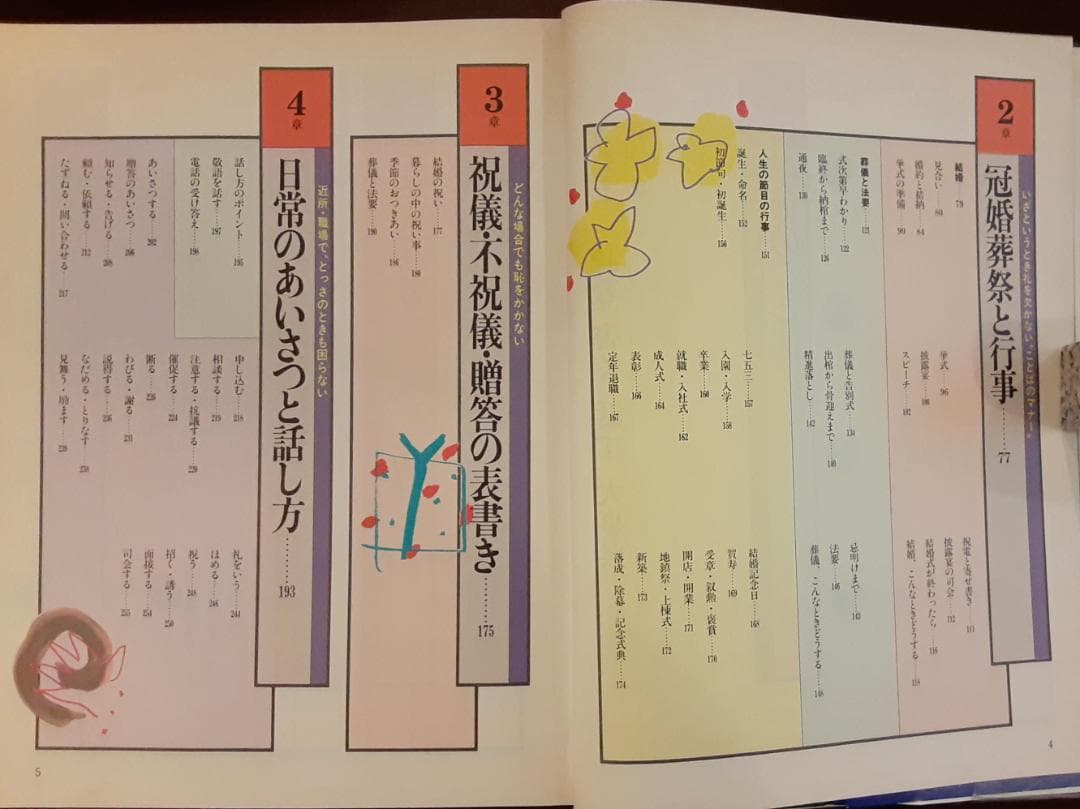 2章
冠婚葬祭と行事………77
いざというとき礼を欠かない、ことばのマナー。
結婚 79
見合い……80
婚約と結納……84
挙式の準備 90
挙式……96
披露宴……100
スピーチ……102
祝電と寄せ書き……111
披露宴の司会……112
結婚式が終わったら……116
結婚、こんなときどうする……118
葬儀と法要……121
式次第早わかり……122
臨終から納棺まで……126
通夜……130
葬儀と告別式……134
出棺から骨迎えまで……140
精進落とし……142
忌明けまで……143
法要……146
葬儀、こんなときどうする……148
人生の節目の行事……151
誕生・命名……152
初節句・初誕生……156
七五三……157
入園・入学……158
卒業……160
就職・入社式……162
成人式……164
表彰……166
定年退職……167
結婚記念日……168
賀寿……169
受章・叙勲・褒賞……170
開店・開業……171
地鎮祭・上棟式……172
新築……173
落成・除幕・記念式典……174
4
3章
祝儀・不祝儀・贈答の表書き………175
どんな場合でも恥をかかない
結婚の祝い……177
暮らしの中の祝い事……180
季節のおつきあい……186
葬儀と法要……190
4章
日常のあいさつと話し方………193
近所・職場で、とっさのときも困らない
話し方のポイント……195
敬語を話す……197
電話の受け答え……198
あいさつする……202
贈答のあいさつ……206
知らせる・告げる……208
頼む・依頼する……212
たずねる・問い合わせる……217
申し込む……218
相談する……219
注意する・抗議する……220
催促する……224
断る……226
わびる・謝る……231
説得する……236
なだめる・とりなす……238
見舞う・励ます……239
礼をいう……244
ほめる……246
祝う……248
招く・誘う……250
面接する……254
司会する……255
5